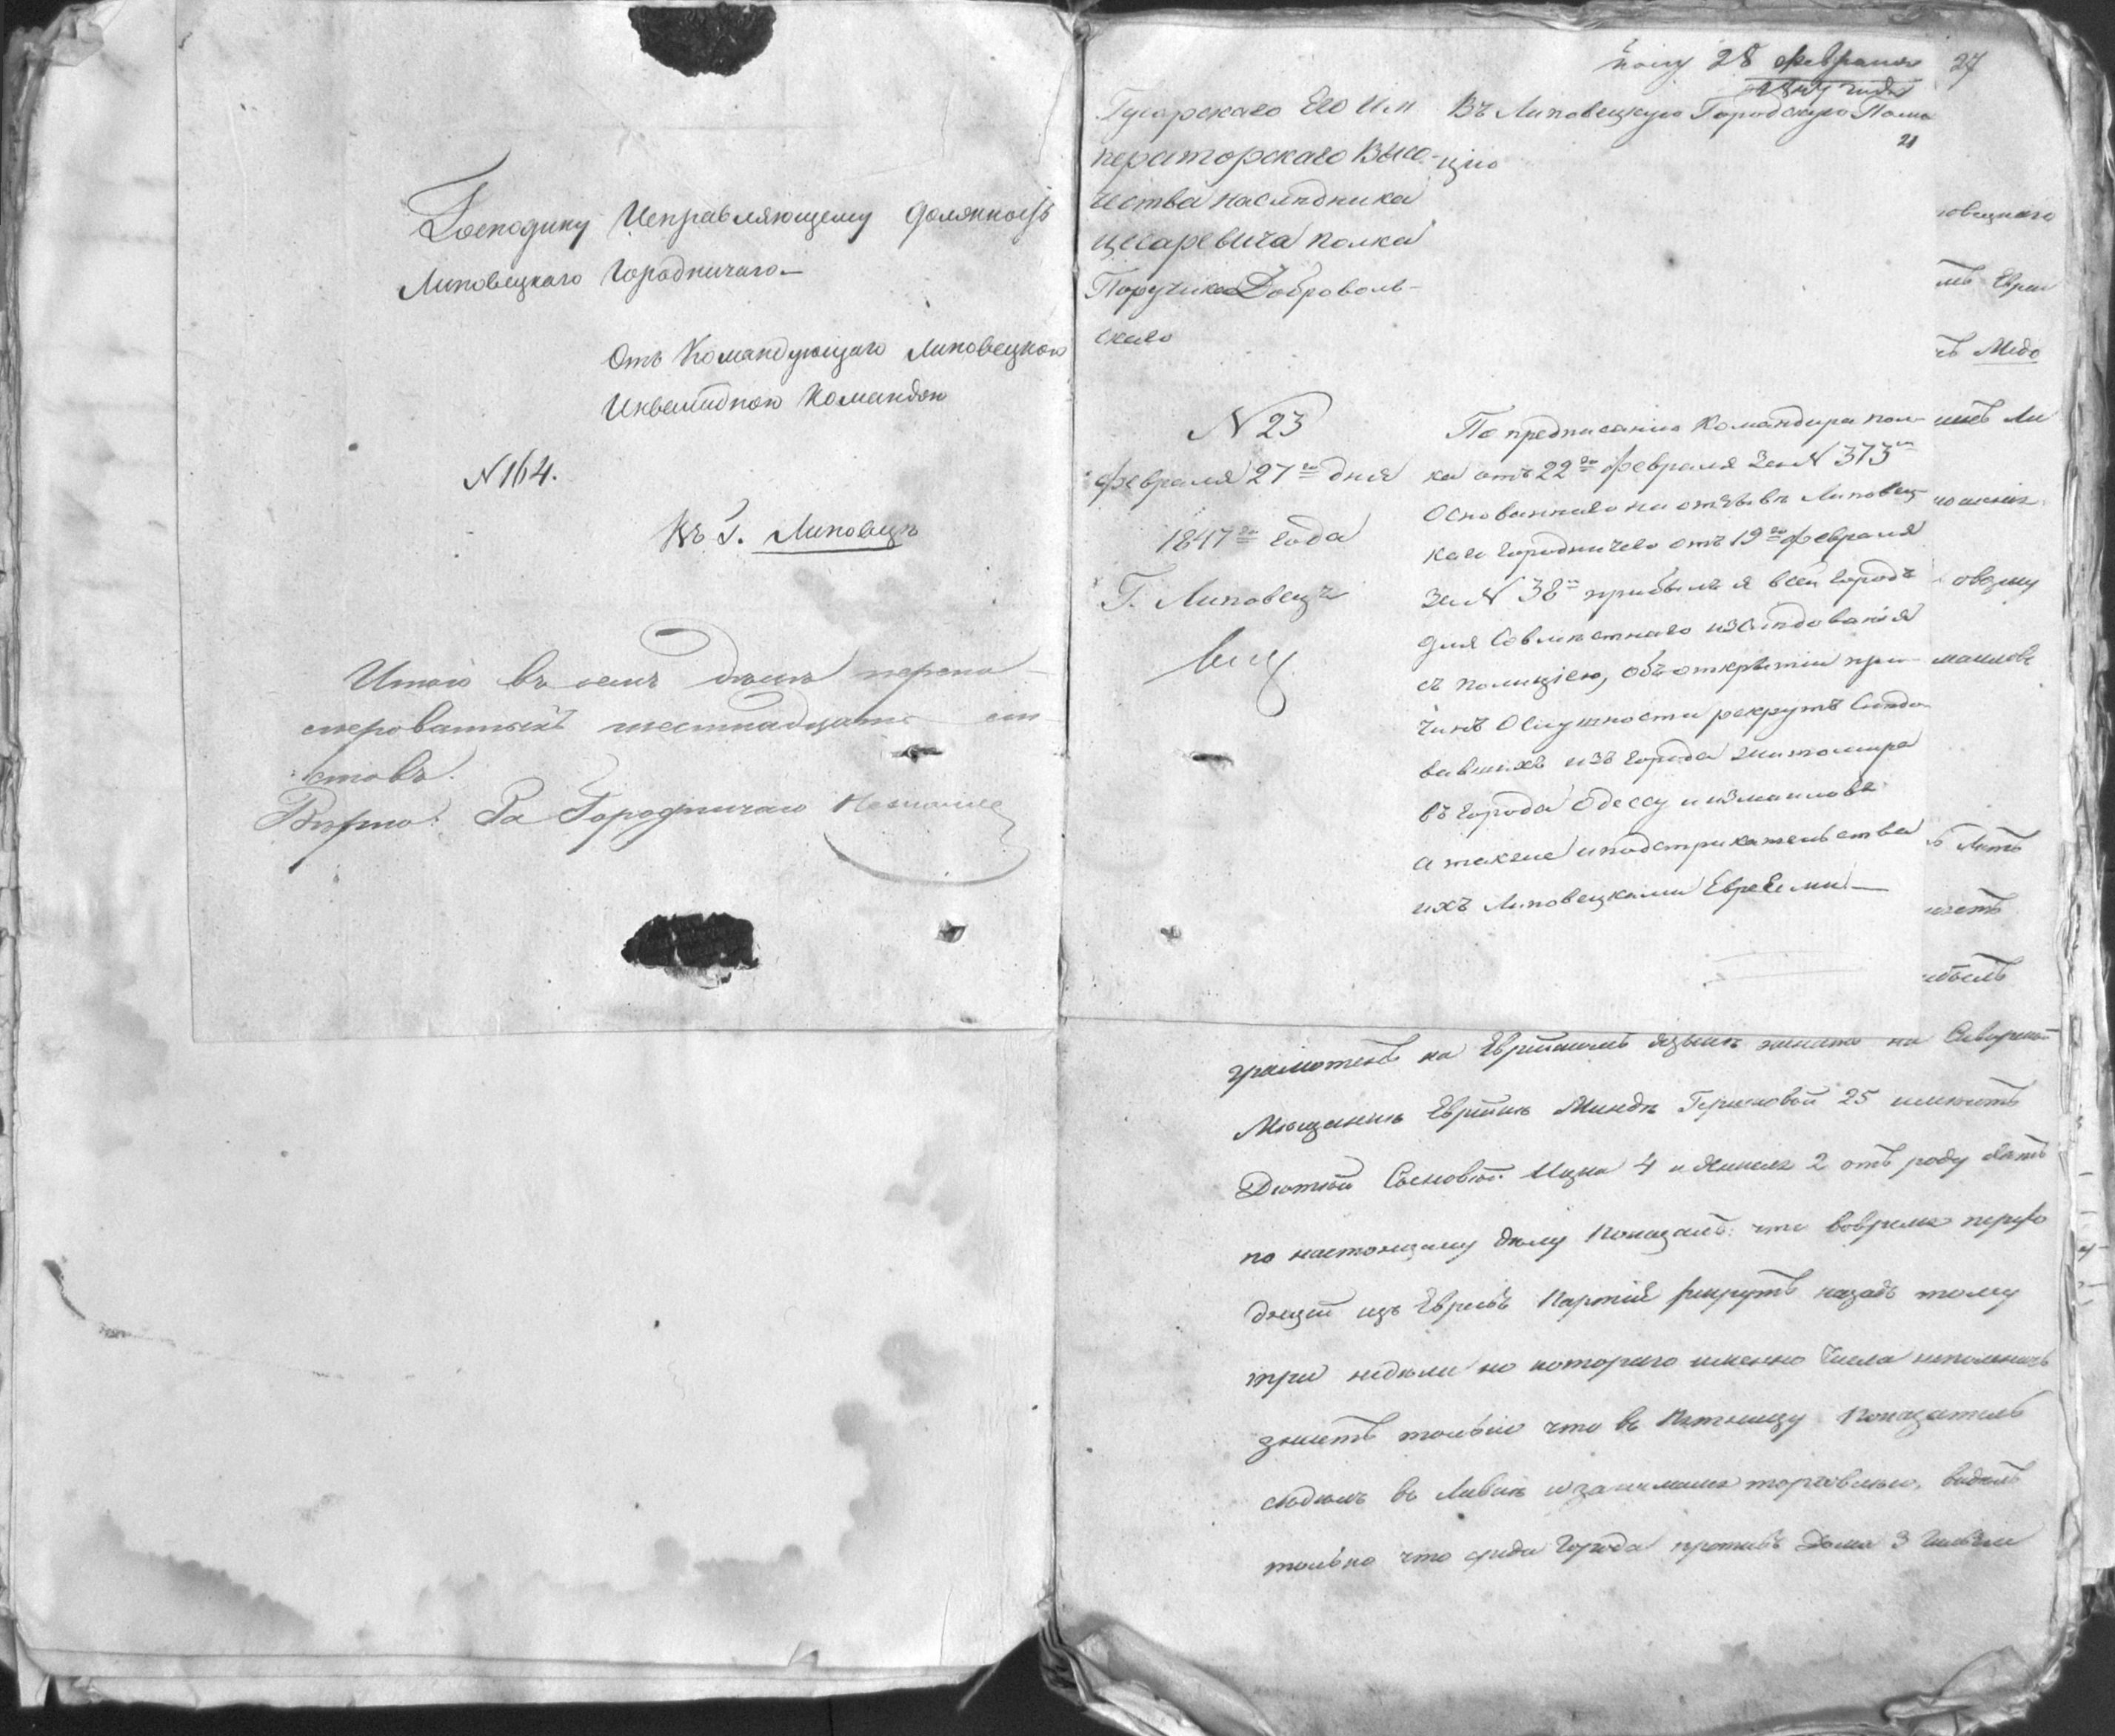 Господину Исправляющему должность
Липовецкаго Городничаго.—
Отъ Командующаго Липовецкою
Инвалидною Командою
N 164.
Въ Г. Липовецъ
Итого въ семъ делѣ перену-
мерованныхъ шестнадцать ли-
стовъ.
Вѣрно: За Городничаго
28 февраля 27
1847 года
21
Гусарскаго Его Им
ператорскаго Высо-
чества наслѣдника
цесаревича полка
Поручика Доброволь-
скаго
N 23
февраля 27го дня
1847го года
Г. Липовецъ
Въ Липовецкую Городскую Поли-
цію
По предписанію Командира пол-
ка отъ 22го февраля За N 373м
основаннаго на отзывѣ Липовец-
каго городничего отъ 19го февраля
За N 38м прибылъ я всей городъ
для Совмѣстнаго изслѣдованія
съ полиціею, объ открытіи при-
чинъ Ослушности рекрутъ Слѣдо-
вавшихъ изъ города Житомира
въ города Одессу и измаилова
а также и подстрикательства
ихъ Липовецкими Евреями—
овецкаго
мъ Евреи
ъ Медо
овому
маилова
ъ Лѣтъ
грамотенъ на Еврейскомъ языкѣ женатъ на Сквирской
Мѣщанкѣ Еврейкѣ Миндѣ Гершковой 25 имѣетъ
Дѣтей Сыновей Ицка 4 и Янкеля 2 отъ роду Лѣтъ
по настоящему дѣлу Показалъ: что вовремя перехо
дящей изъ Евреевъ Партіи рекрутъ назадъ тому
три недѣли но котораго именно Числа непомнитъ
знаетъ только что въ Пятницу Показатель
сидѣлъ въ Лавкѣ и занимался торговлею, видѣлъ
только что среди Города противъ Дома